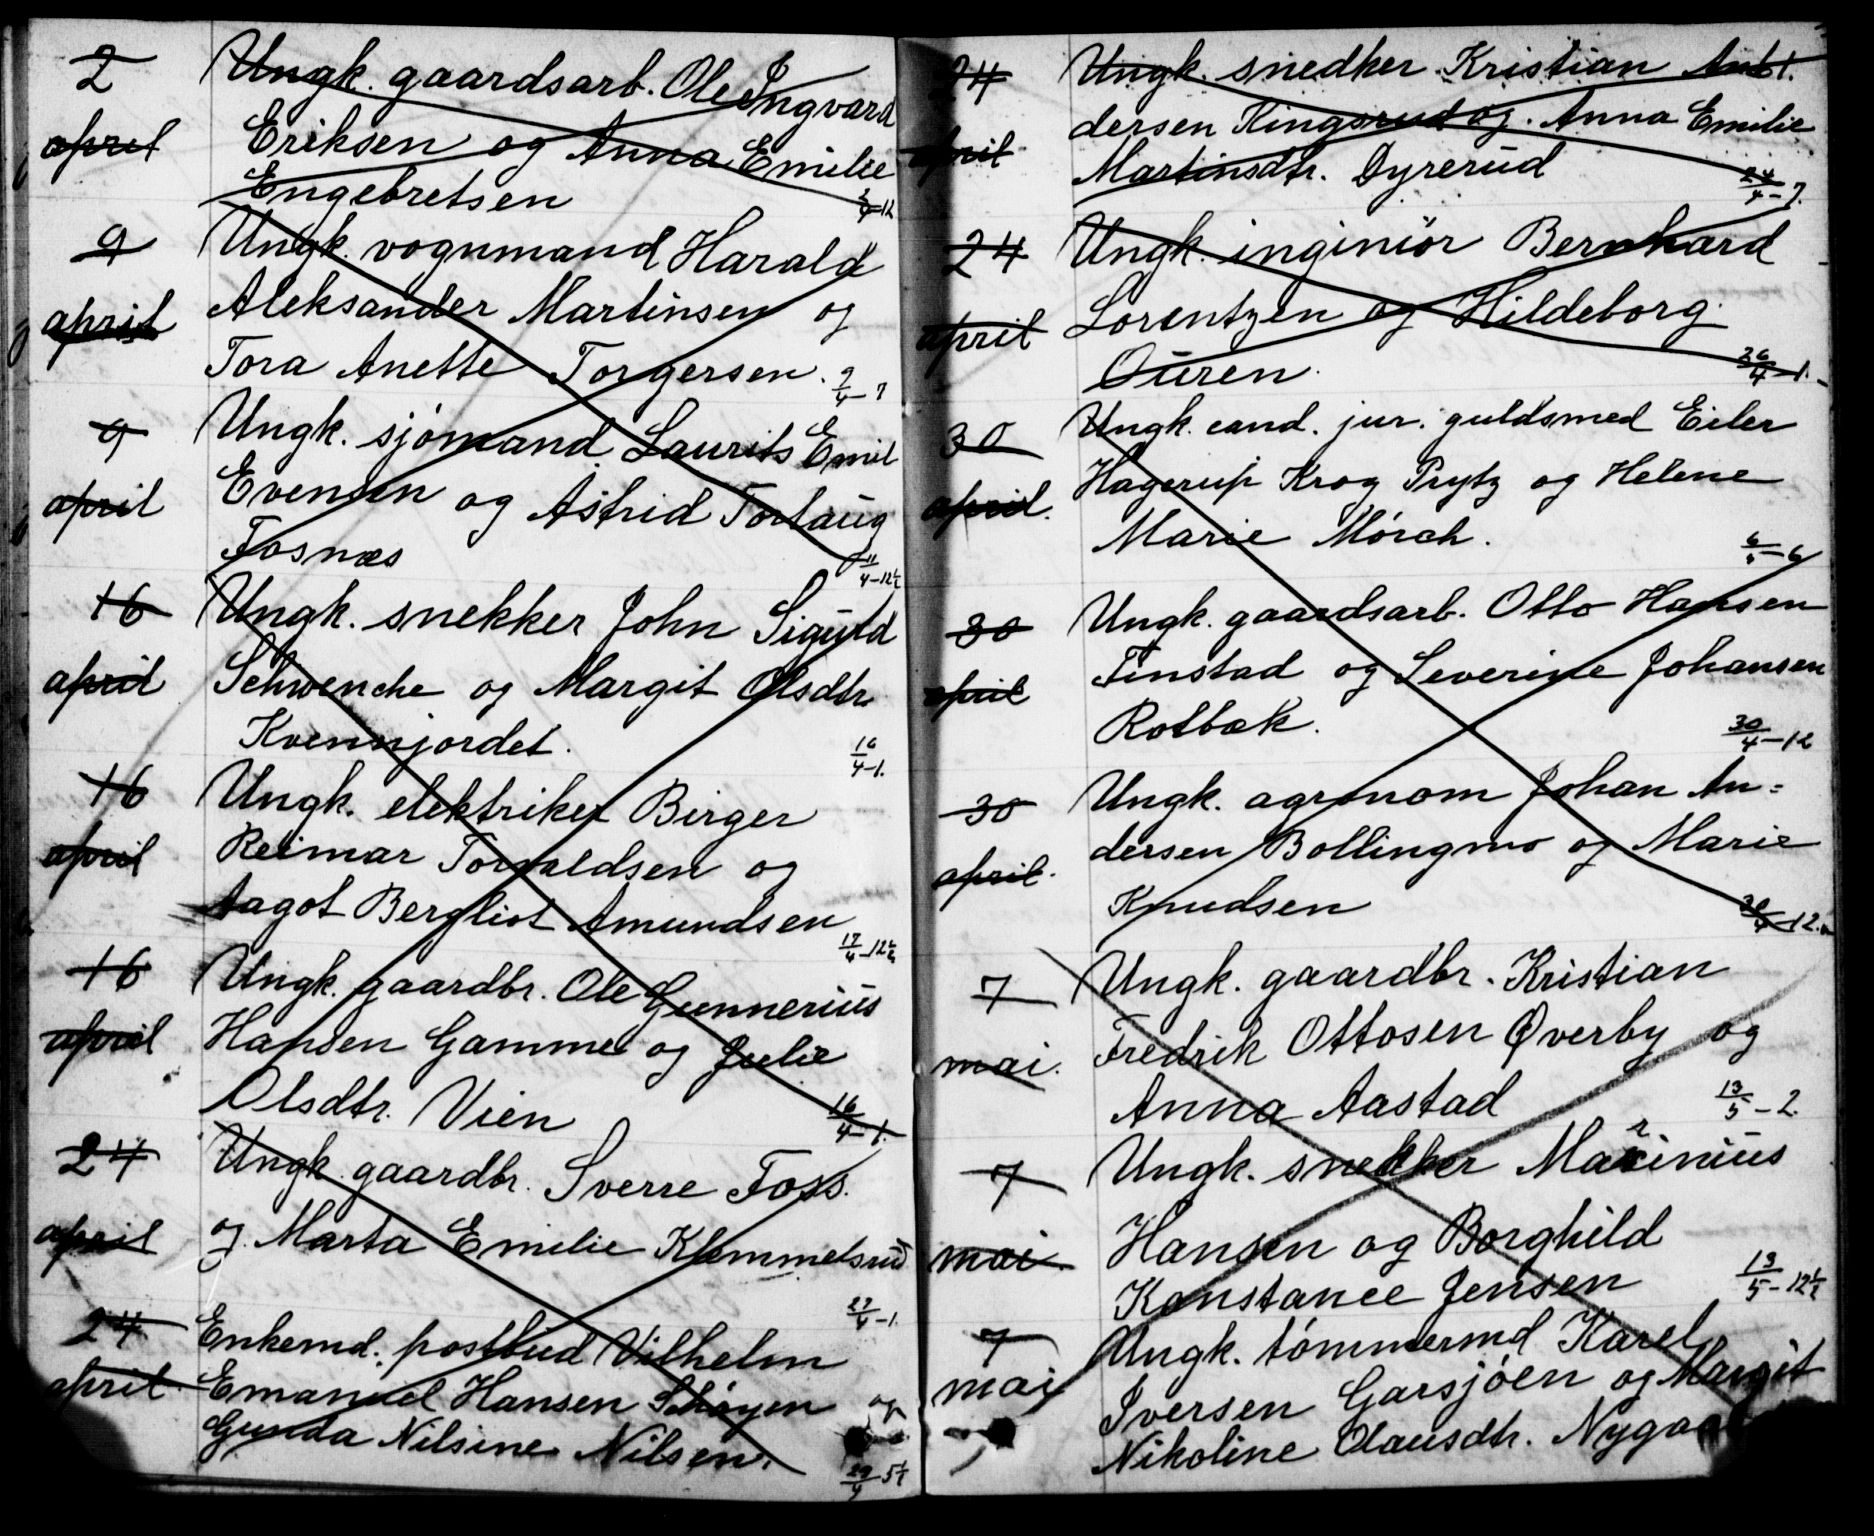 2 april
Ungk. gaardsarb. Ole Ingvard
Eriksen og Anna Emilie
Engebretsen 2/4-12
9 april
Ungk. vognmand Harald
Aleksander Martinsen og
Tora Anette Torgersen. 9/4-7
9 april
Ungk. sjömand Laurits Emil
Evensen og Astrid Torlaug
Fosnæs 11/4-12½
16 april
Ungk. snekker John Sigurd
Schwenche og Margit Olsdtr.
Kvennjordet. 16/4-1.
16 april
Ungk. elektriker Birger
Reimar Torvaldsen og
Aagot Bergliot Amundsen 17/4-12½
16 april
Ungk. gaardbr. Ole Gunnerius
Hansen Gamme og Julie
Olsdtr. Vien 16/4-1.
24 april
Ungk. gaardbr. Sverre Foss.
og Marta Emilie Klemmetsrud
27/4-1.
24 april
Enkemd. postbud Vilhelm
Emanuel Hansen Schøyen og
Gunda Nilsine Nilsen. 29/4 5½
24 april
Ungk. snedker Kristian
dersen Ringsrud og Anna Emilie
Martinsdtr. Dyrerud 24/4-7.
24 april
Ungk. inginiör Bernhard
Lorentzen og Hildeborg
Ouren. 26/4-1.
30 april.
Ungk. cand. jur. guldsmed Eiler
Hagerup Krog Prytz og Helene
Marie Mörch. 6/5-6
30 april
Ungk. gaardsarb. Otto Hansen
Finstad og Severine Johansen
Rotbæk. 30/4-12
30 april.
Ungk. agronom Johan An=
dersen Bollingmo og Marie
Knudsen 30/4-12.
7 mai.
Ungk. gaardbr. Kristian
Fredrik Ottosen Øverby og
Anna Aastad 13/5-2.
7 mai.
Ungk. snekker Marinius
Hansen og Borghild
Konstance Jensen 13/5-12½
7 mai
Ungk. tömmermd Karel
Iversen Garsjöen og Margit
Nikoline Olausdtr.